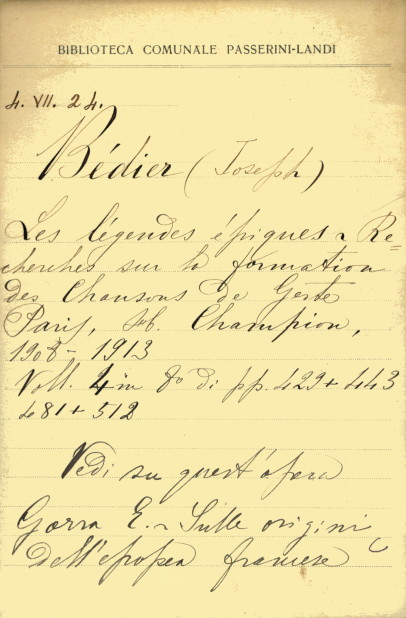 BIBLIOTECA COMUNALE PASSERINI-LANDI
4. VII. 24.
Bédier (Joseph)
Les légendes épiques ~ Re=
cherches sur la formation
des Chansons de Geste
Paris, H. Champion,
1908 - 1913
Voll. 4 in 8° di pp. 429 + 443
481 + 512
Vedi su quest'opera
Gorra E. ~ Sulle origini
dell'epopea francese